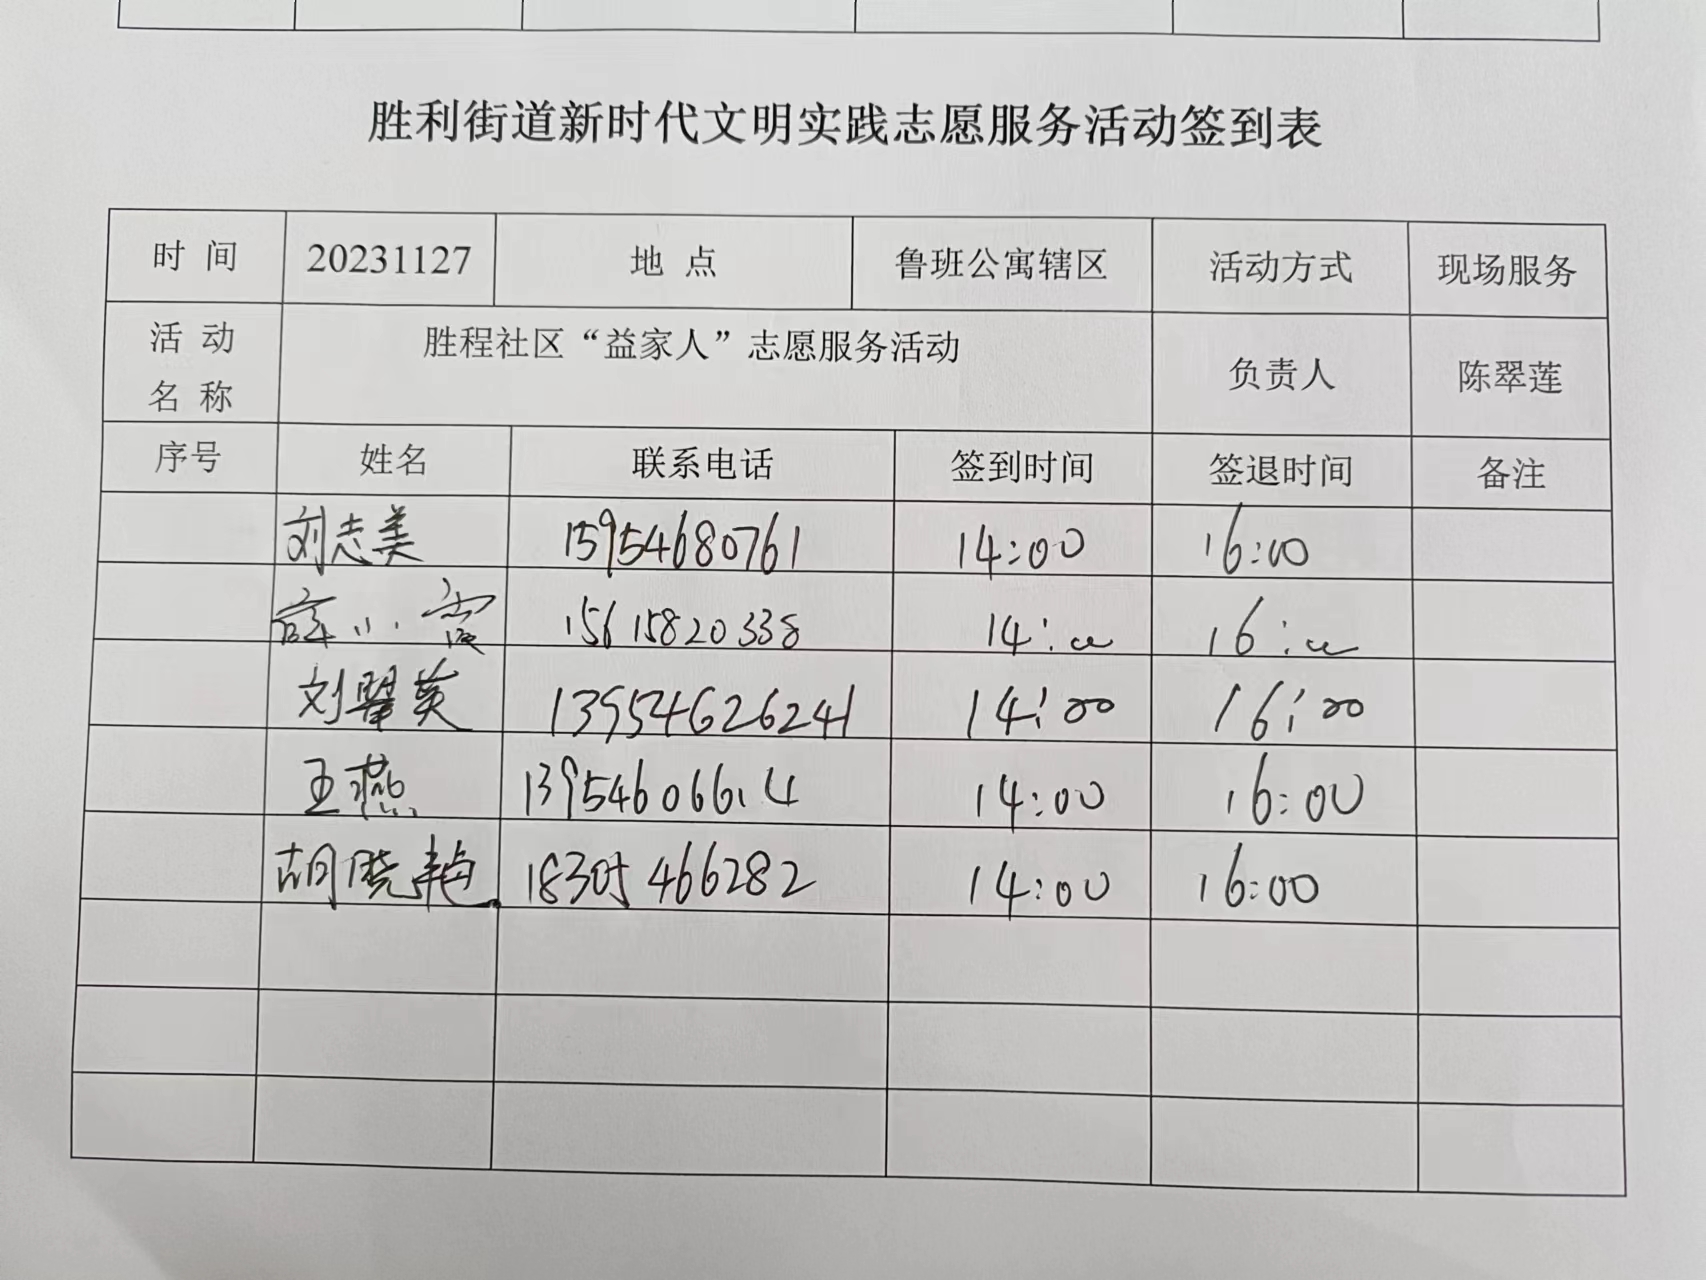 胜利街道新时代文明实践志愿服务活动签到表
时 间 20231127 地 点 鲁班公寓辖区 活动方式 现场服务
活 动 名 称 胜程社区“益家人”志愿服务活动 负责人 陈翠莲
序号 姓名 联系电话 签到时间 签退时间 备注
刘志美 15954680761 14:00 16:00
薛小 15615820338 14:00 16:00
刘翠英 13954626241 14:00 16:00
王燕 13954606614 14:00 16:00
胡晓艳 466282 14:00 16:00